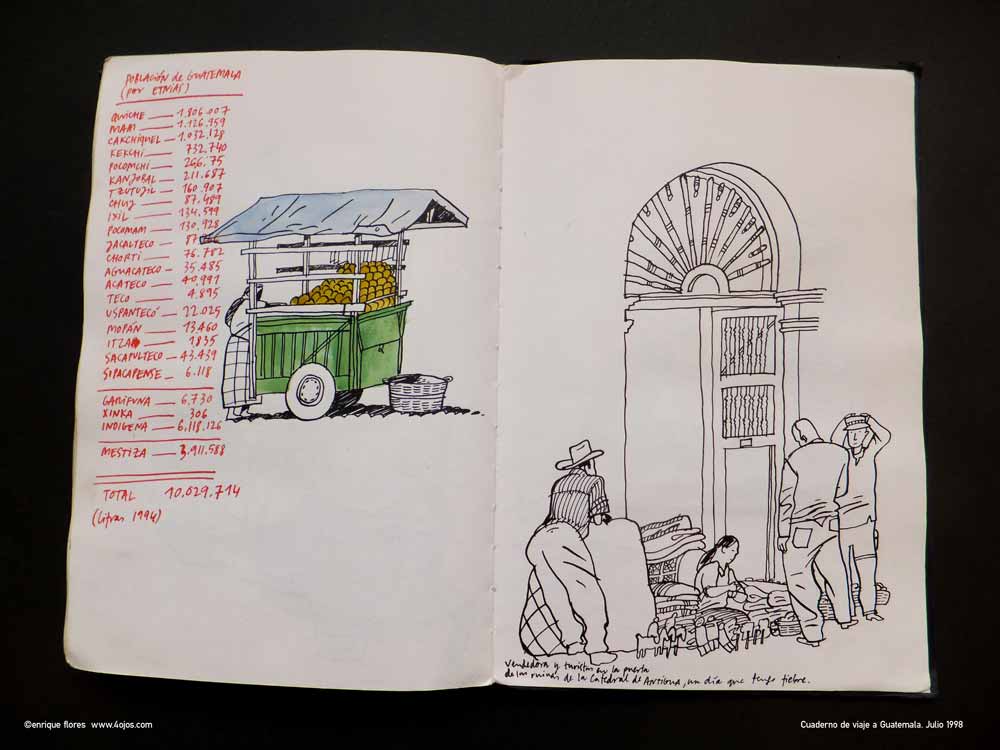 POBLACIÓN de GUATEMALA
(por ETNIAS)
QUICHE — 1.806.007
MAM — 1.126.959
CAKCHIQUEL — 1.032.128
KEKCHI — 732.740
POCOMCHI — 266.75
KANJOBAL — 211.687
TZUTUJIL — 160.907
CHUJ — 87.489
IXIL — 134.599
POCOMAM — 130.928
JACALTECO — 87
CHORTI — 76.782
AGUACATECO — 35.485
ACATECO — 40.991
TECO — 4.895
USPANTECO — 22.025
MOPÁN — 13.460
ITZA — 1835
SACAPULTECO — 43.439
SIPACAPENSE — 6.118
GARIFUNA — 6.730
XINKA — 306
INDIGENA — 6.118.126
MESTIZA — 3.911.588
TOTAL 10.029.714
(cifras 1994)
Vendedora y turistas en la puerta
de las ruinas de la Catedral de Antigua, un día que tengo fiebre.
©enrique flores www.4ojos.com
Cuaderno de viaje a Guatemala. Julio 1998